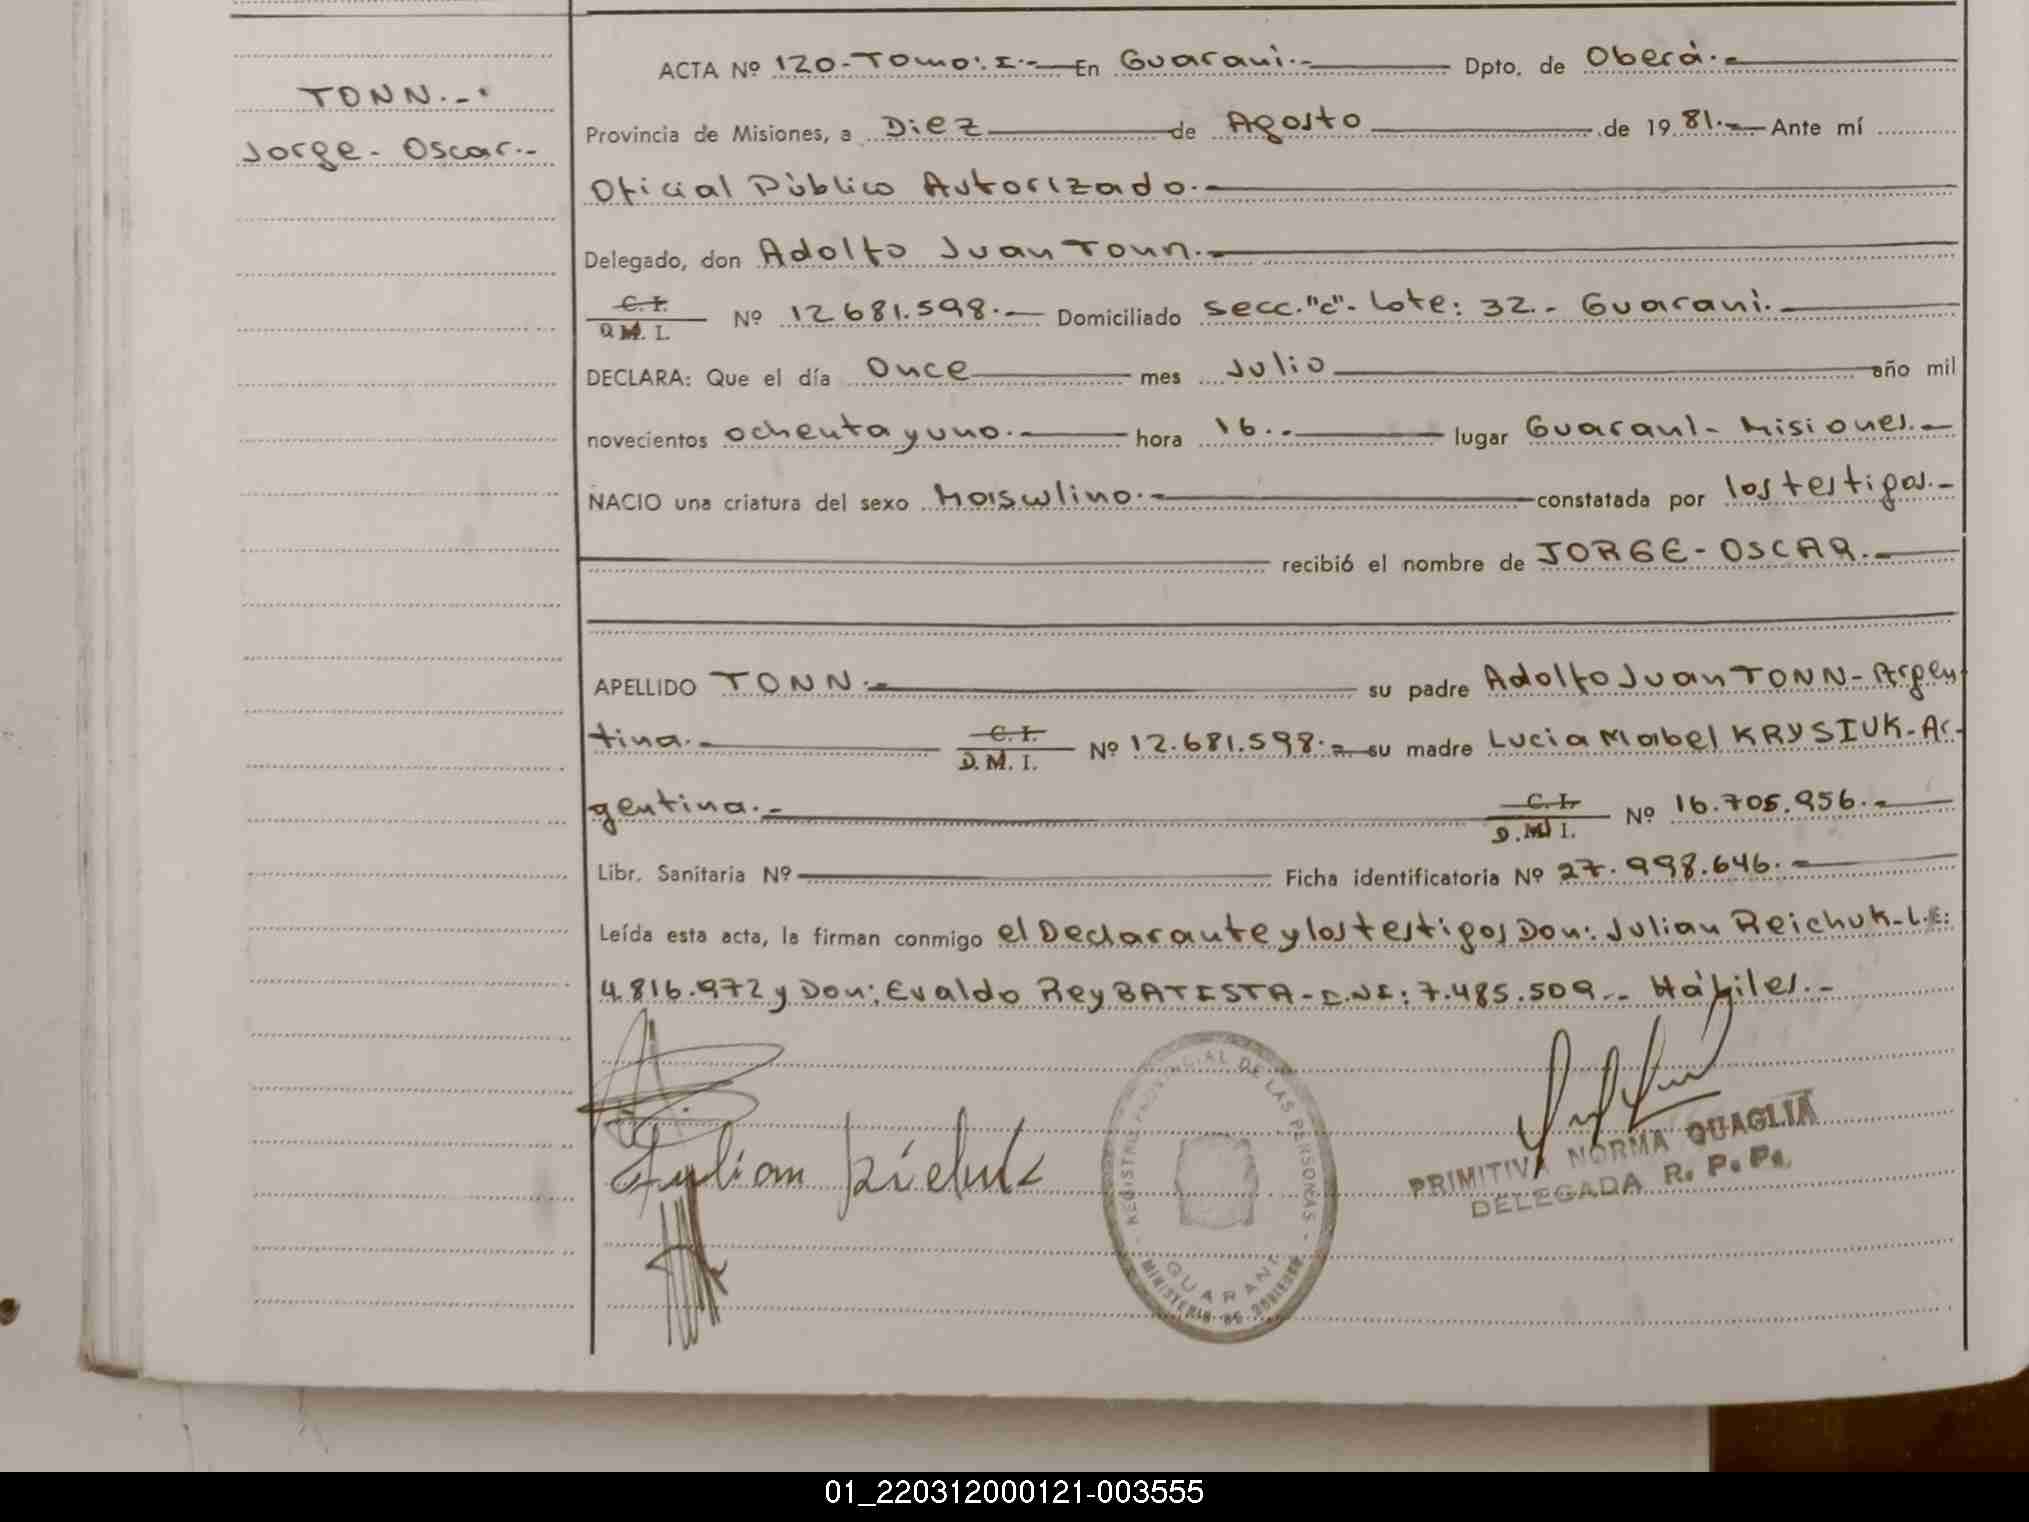 TONN.-.
Jorge- Oscar.-
ACTA Nº 120-Tomo: I.- En Guaraní.- Dpto. de Oberá.-
Provincia de Misiones, a Diez de Agosto de 1981.- Ante mí
Oficial Público Autorizado.-
Delegado, don Adolfo Juan Tonn.-
C. I.
D.M. I. Nº 12681.598.- Domiciliado Secc."c"- Lote: 32.- Guaraní.-
DECLARA: Que el día Once mes Julio año mil
novecientos ochenta y uno.- hora 16.- lugar Guaraní- Misiones.-
NACIO una criatura del sexo Masculino.- constatada por los testigos.-
recibió el nombre de JORGE- OSCAR.-
APELLIDO TONN.- su padre Adolfo Juan TONN- Argen
tina.- C. I. D. M. I. Nº 12.681.598.- su madre Lucia Mabel KRYSIUK- Ar-
gentina.- C. I. D. M. I. Nº 16.705.956.-
Libr. Sanitaria Nº Ficha identificatoria Nº 27.998.646.-
Leída esta acta, la firman conmigo el Declarante y los testigos Don: Julian Reichuk- L.E:
4.816.972 y Don: Evaldo Rey BATISTA- D.N.I: 7.485.509.- Hábiles.-
Julian
REGISTRO PROVINCIAL DE LAS PERSONAS
GUARANI
MINISTERIO DE GOBIERNO
PRIMITIVA NORMA QUAGLIA
DELEGADA R. P. P.
01_220312000121-003555